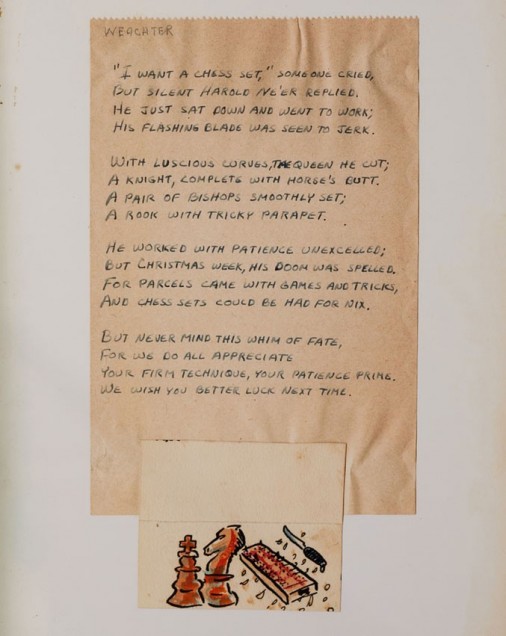 WEACHTER
"I WANT A CHESS SET," SOMEONE CRIED,
BUT SILENT HAROLD NE'ER REPLIED.
HE JUST SAT DOWN AND WENT TO WORK;
HIS FLASHING BLADE WAS SEEN TO JERK.
WITH LUSCIOUS CURVES, THE QUEEN HE CUT;
A KNIGHT, COMPLETE WITH HORSE'S BUTT.
A PAIR OF BISHOPS SMOOTHLY SET;
A ROOK WITH TRICKY PARAPET.
HE WORKED WITH PATIENCE UNEXCELLED;
BUT CHRISTMAS WEEK, HIS DOOM WAS SPELLED.
FOR PARCELS CAME WITH GAMES AND TRICKS,
AND CHESS SETS COULD BE HAD FOR NIX.
BUT NEVER MIND THIS WHIM OF FATE,
FOR WE DO ALL APPRECIATE
YOUR FIRM TECHNIQUE, YOUR PATIENCE PRIME.
WE WISH YOU BETTER LUCK NEXT TIME.